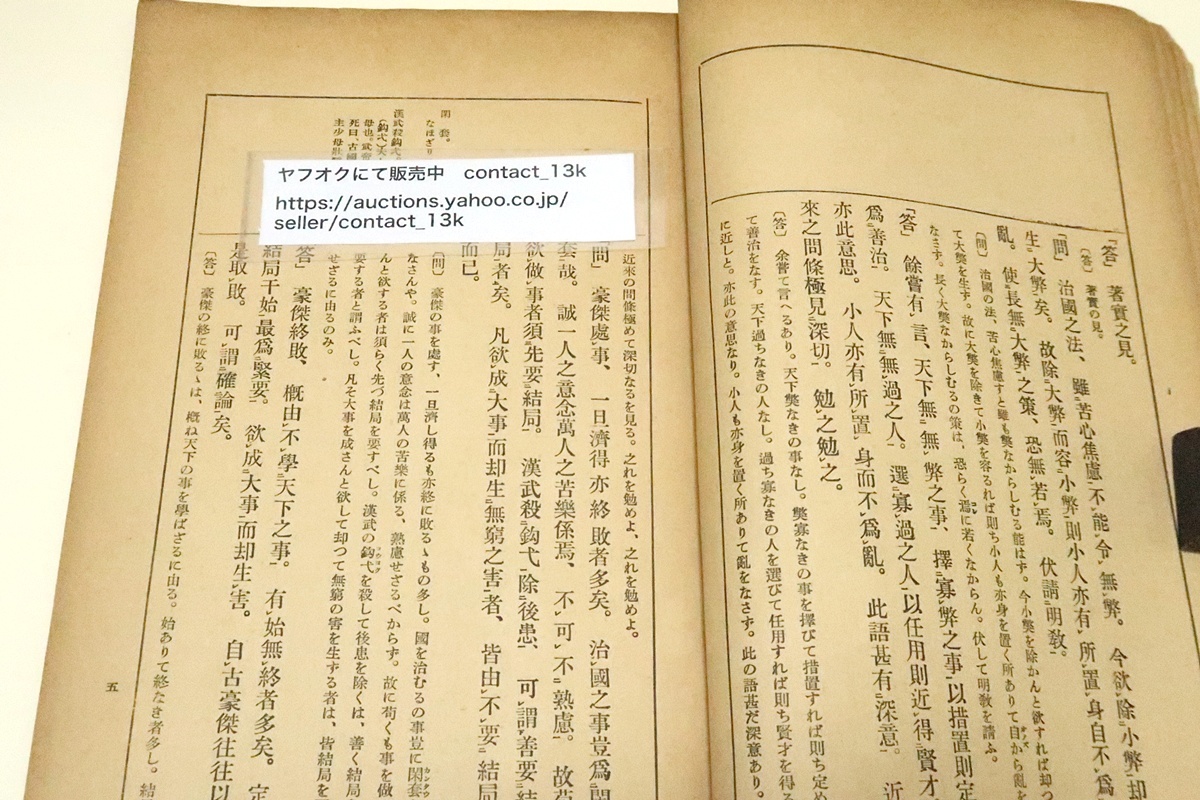 「答」　著實之見。
〔答〕　著實の見。
「問」　治國之法、雖苦心焦慮不能令無弊。　今欲除小弊却
生大弊矣。　故除大弊而容小弊則小人亦有所置身自不爲
亂。　使長無大弊之策、恐無若焉。　伏請明敎。
〔問〕　治國の法、苦心焦慮すと雖も弊なからしむる能はす。今小弊を除かんと欲すれば却つ
て大弊を生す。故に大弊を除きて小弊を容るれば則ち小人も亦身を置く所ありて自から亂を
なさす。長く大弊なからしむるの策は、恐らく焉に若くなからん。伏して明敎を請ふ。
「答」　餘嘗有言、天下無無弊之事、擇寡弊之事以措置則定
爲善治。　天下無無過之人。　選寡過之人以任用則近得賢才
亦此意思。　小人亦有所置身而不爲亂。　此語甚有深意。　近
來之問條極見深切。　勉之勉之。
〔答〕　余嘗て言へるあり。天下弊なきの事なし。弊寡なきの事を擇びて措置すれば則ち定め
て善治をなす。天下過ちなきの人なし。過ち寡なきの人を選びて任用すれば則ち賢才を得る
に近しと。亦此の意思なり。小人も亦身を置く所ありて亂をなさす。此の語甚だ深意あり。
閑套。
なほざり
漢武殺鉤弋。
ヤフオクにて販売中　contact_13k
https://auctions.yahoo.co.jp/
seller/contact_13k
近來の問條極めて深切なるを見る。之れを勉めよ、之れを勉めよ。
問」　豪傑處事、一旦濟得亦終敗者多矣。　治國之事豈爲閑
套哉。　誠一人之意念萬人之苦樂係焉、不可不熟慮。　故苟
欲做事者須先要結局。　漢武殺鈎弋除後患、可謂善要結
局者矣。　凡欲成大事而却生無窮之害者、皆由不要結局
而已。
〔問〕　豪傑の事を處す、一旦濟し得るも亦終に敗るゝもの多し。國を治むるの事豈に閑套
なさんや。誠に一人の意念は萬人の苦樂に係る、熟慮せさるべからず。故に苟くも事を做
んと欲する者は須らく先づ結局を要すべし。漢武の鈎弋を殺して後患を除くは、善く結局
要する者と謂ふべし。凡そ大事を成さんと欲して却つて無窮の害を生ずる者は、皆結局を
せさるに由るのみ。
答」　豪傑終敗、概由不學天下之事。　有始無終者多矣。　定
結局于始最爲緊要。　欲成大事而却生害。　自古豪傑往往以
是取敗。　可謂確論矣。
〔答〕　豪傑の終に敗るゝは、概ね天下の事を學ばざるに由る。始ありて終なき者多し。結
五